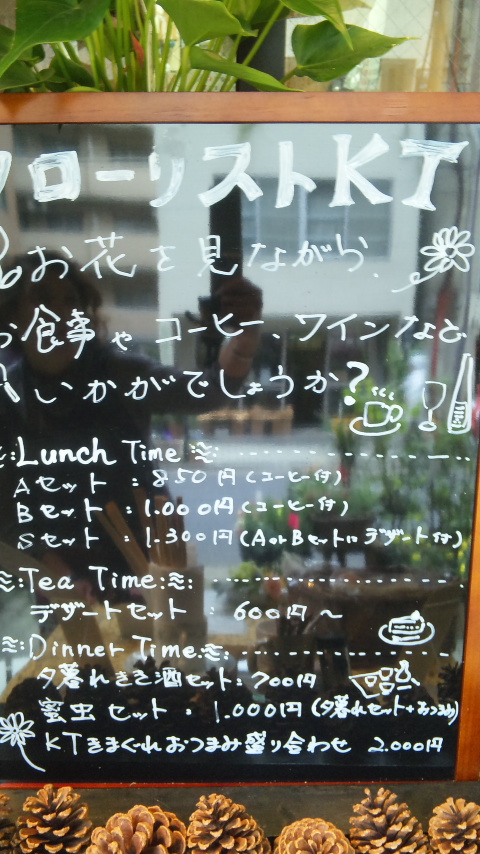 フローリストKT
お花を見ながら、
お食事や コーヒー、ワインなど
いかがでしょうか?
Lunch Time
Aセット : 850円(コーヒー付)
Bセット : 1.000円(コーヒー付)
Sセット : 1.300円(AorBセットにデザート付)
Tea Time
デザートセット : 600円〜
Dinner Time
夕暮れきき酒セット : 700円
蜜虫セット : 1.000円(夕暮れセット+おつまみ)
KTきまぐれおつまみ盛り合わせ 2.000円